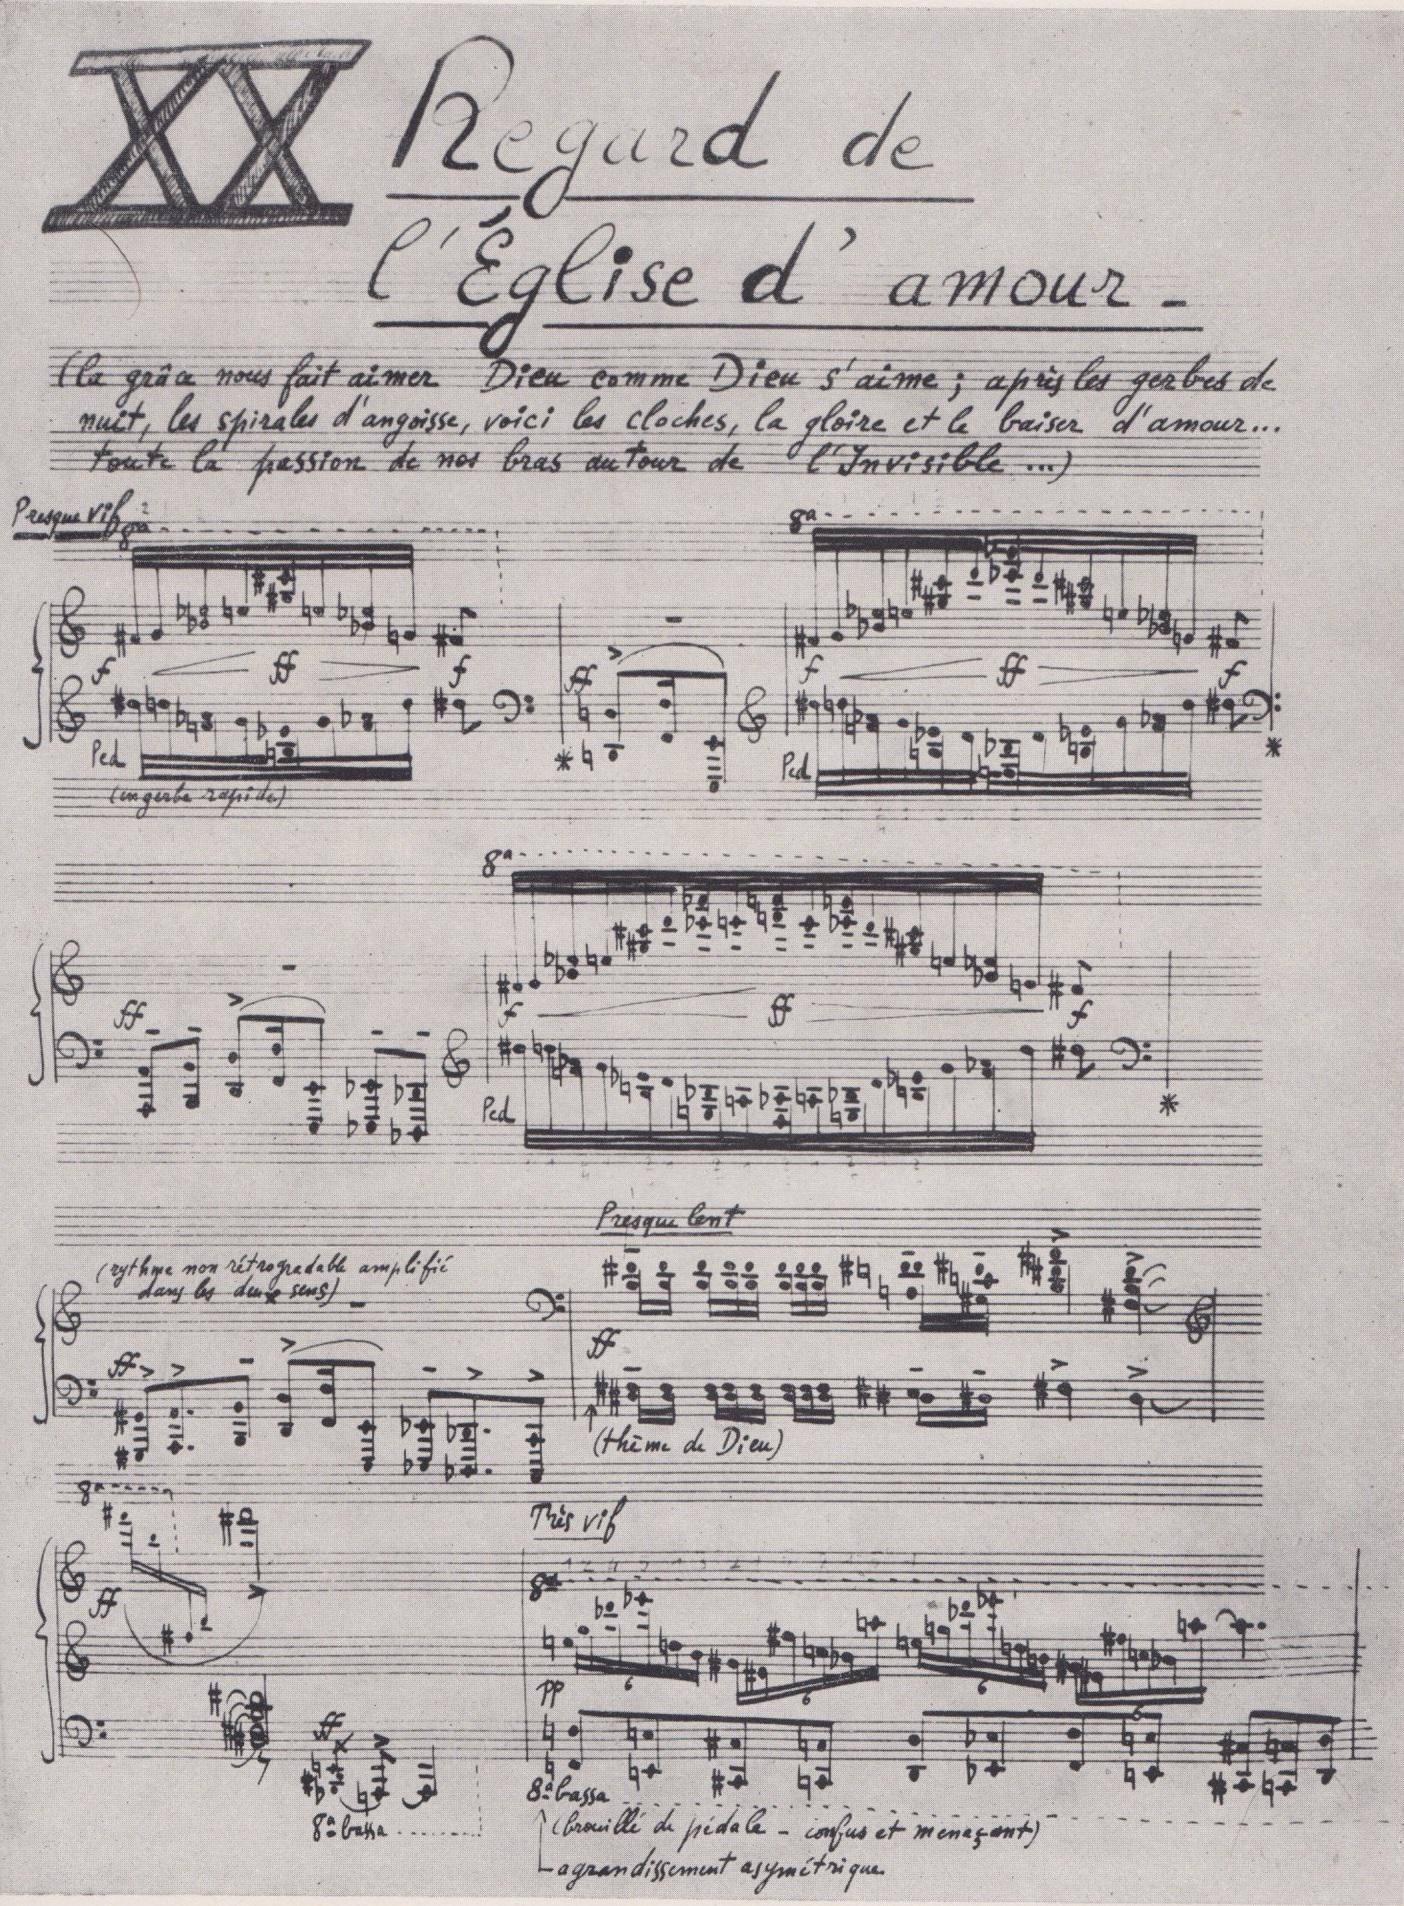 XX Regard de
l'Église d'amour -
(la grâce nous fait aimer Dieu comme Dieu s'aime ; après les gerbes de
nuit, les spirales d'angoisse, voici les cloches, la gloire et le baiser d'amour...
toute la passion de nos bras autour de l'Invisible ...)
Presque vif 8a 8a
f ff f ff f ff f
Ped * Ped *
(en gerbe rapide)
8a
ff f ff f
Ped *
Presque lent
(rythme non rétrogradable amplifié
dans les deux sens)
ff ff
(thème de Dieu)
8a
Très vif
8a
ff
6 6 6 6
pp
ff
8a bassa
8a bassa
(brouillé de pédale - confus et menaçant)
agrandissement asymétrique